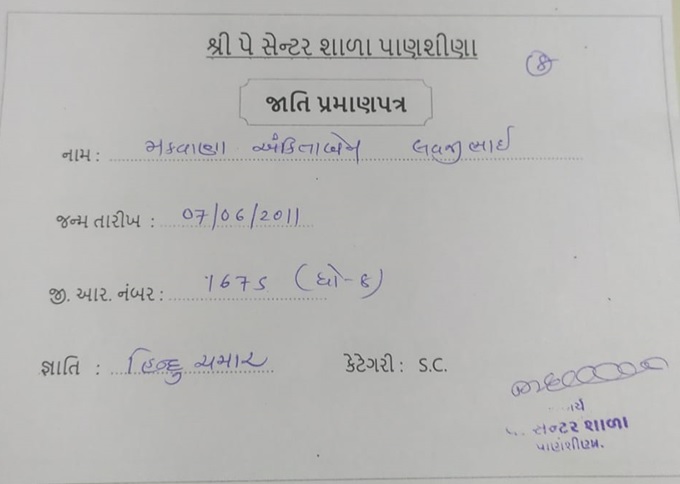 શ્રી પે સેન્ટર શાળા પાણશીણા
૪
જાતિ પ્રમાણપત્ર
નામ : મકવાણા અંકિતાબેન લવજીભાઈ
જન્મ તારીખ : 07/06/2011
જી. આર. નંબર : 1675 (ધો-૬)
જ્ઞાતિ : હિન્દુ ચમાર કેટેગરી : S.C.
સેન્ટર શાળા
પાણશીણા.